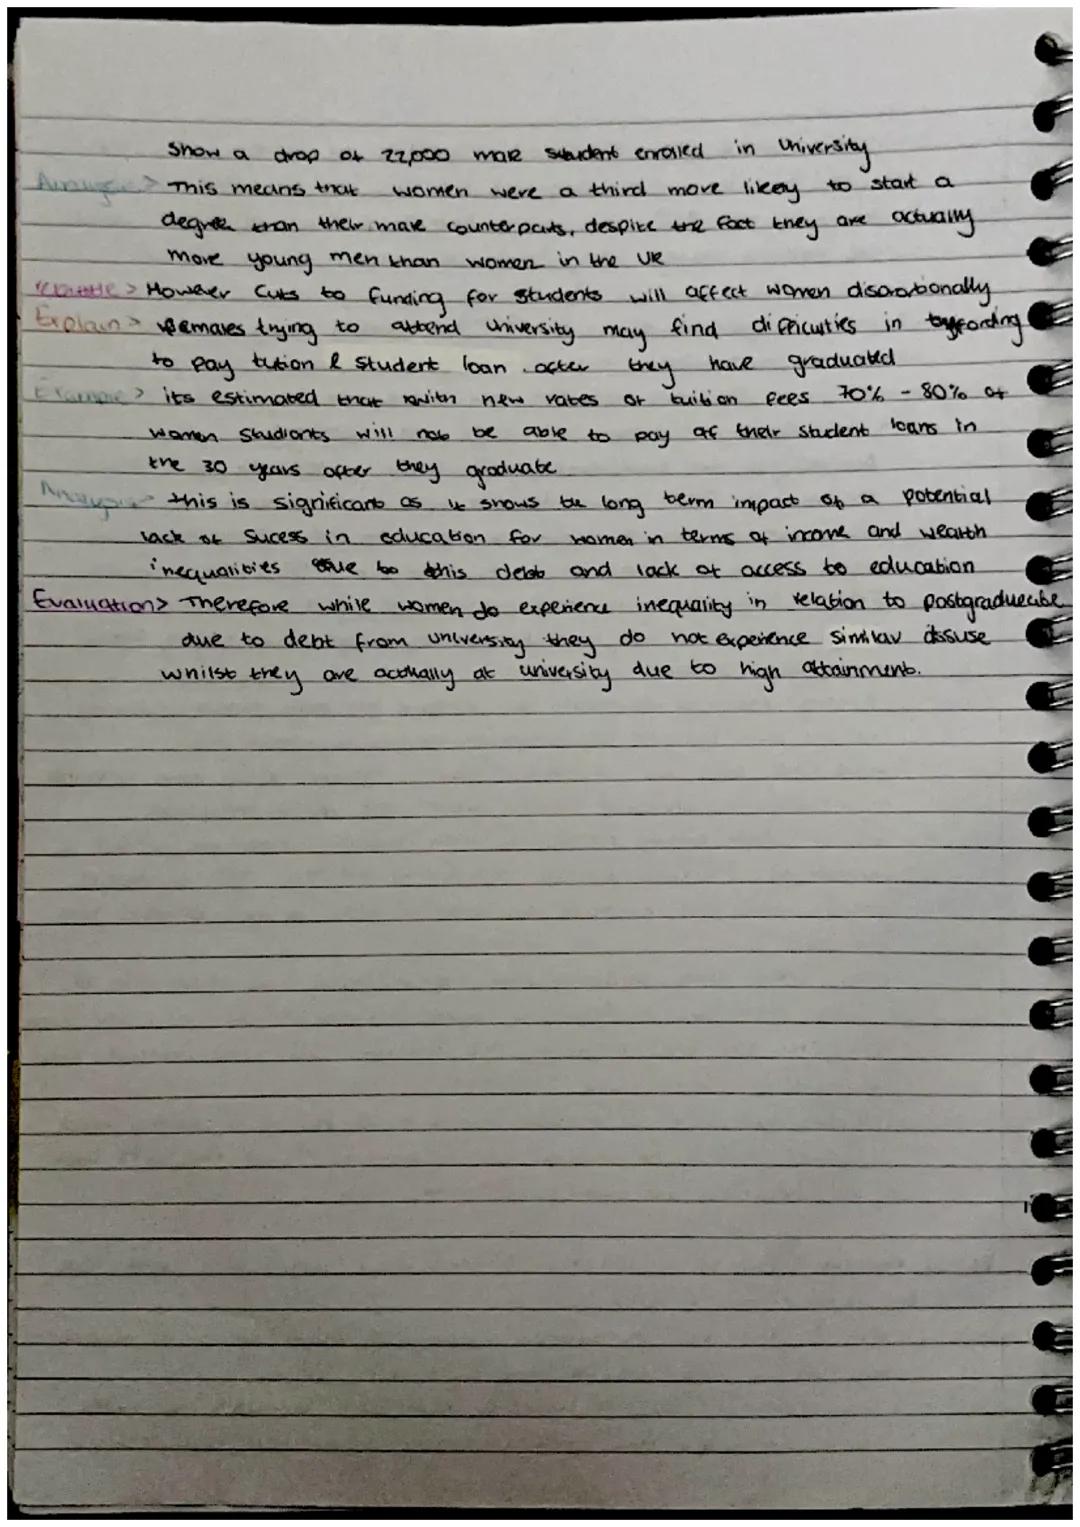 Show a drop of 22,000 male student enrolled in University
Analysis > This means that women were a third more likely to start a
degree than their male counterparts, despite the fact they are actually
more young men than women in the UK
> However cuts to funding for students will affect women disororbonally
Explain > Females trying to attend university may find difficulties in affording
to pay tution & student loan after they have graduated
Example > its estimated that with new rates of tuition fees 70% - 80% of
women studionts will not be able to pay of their student loans in
the 30 years after they graduate
Analysis > this is significant as it shows the long term impact of a potential
lack of sucess in education for women in terms of income and wealth
inequalities due to this debt and lack of access to education
Evaluation > Therefore while women do experience inequality in relation to postgradueate
due to debt from university they do not experience similar issuse
whilst they are actually at university due to high attainment.